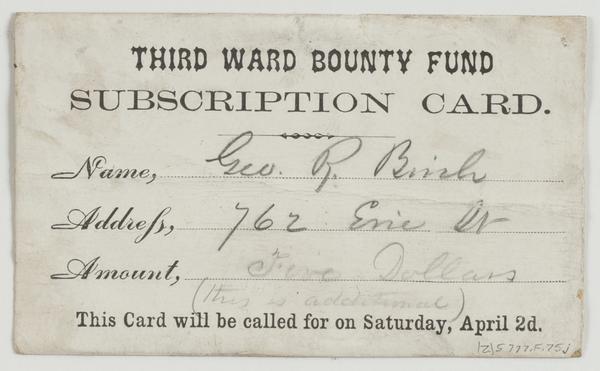 THIRD WARD BOUNTY FUND
SUBSCRIPTION CARD.
Name, Geo. R.
Addreſs, 762 Erie St
Amount, Five Dollars
(this is additional)
This Card will be called for on Saturday, April 2d.